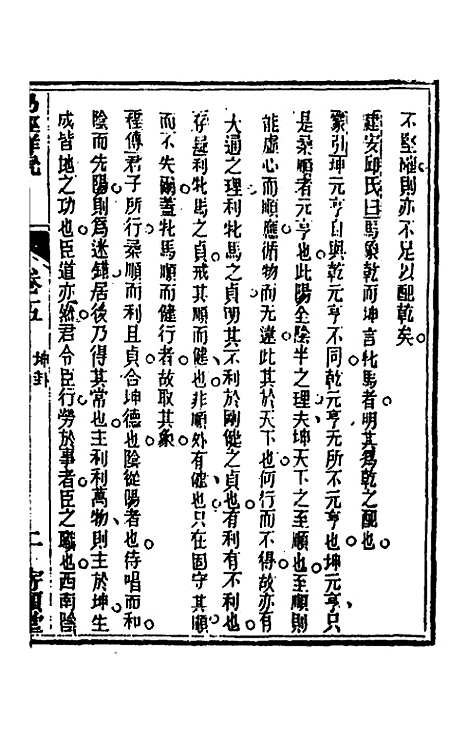 不堅確則亦不足以配乾矣
建安邱氏曰馬象乾而坤言牝馬者明其爲乾之配也
蒙引坤元亨自與乾元亨不同乾元亨无所不元亨也坤元亨只
是柔順者元亨也此陽全陰半之理夫坤天下之至順也至順
能虛心而順應循物而无違此其於天下也何行而不得故亦有
大通之理利牝馬之貞明其不利於剛健之貞也有利有不利也
存疑利牝馬之貞戒其順而健也非順外有健也只在固守其順
而不失爾蓋牝馬順而健行者故取其象
程傳君子所行柔順而利且貞合坤德也陰從陽者也待唱而和
陰而先陽則爲迷錯居後乃得其常也主利利萬物則主於坤生
成皆地之功也臣道亦然君令臣行勞於事者臣之職也西南陰
易經詳說
卷五
坤卦
二
寄願堂